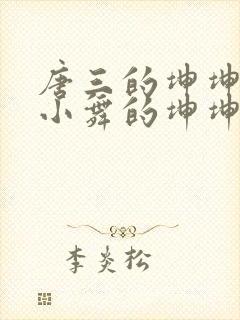 唐三的坤坤
小舞的坤坤
李炎松